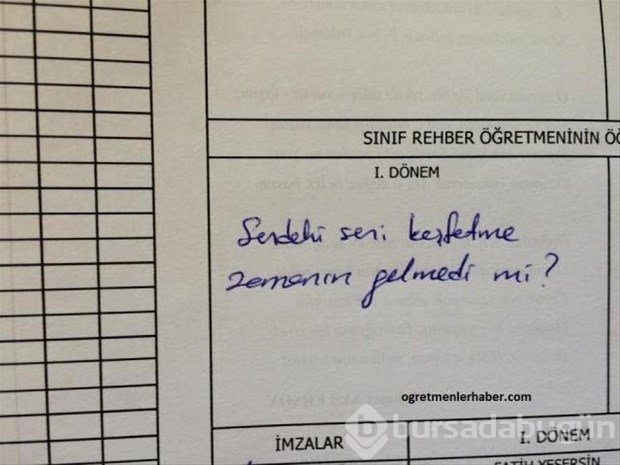 SINIF REHBER ÖĞRETMENİNİN ÖĞ
I. DÖNEM
Sendeki seni keşfetme
zamanın gelmedi mi?
ogretmenlerhaber.com
bursadabugün
İMZALAR
I. DÖNEM
FATİH YEŞERSİN